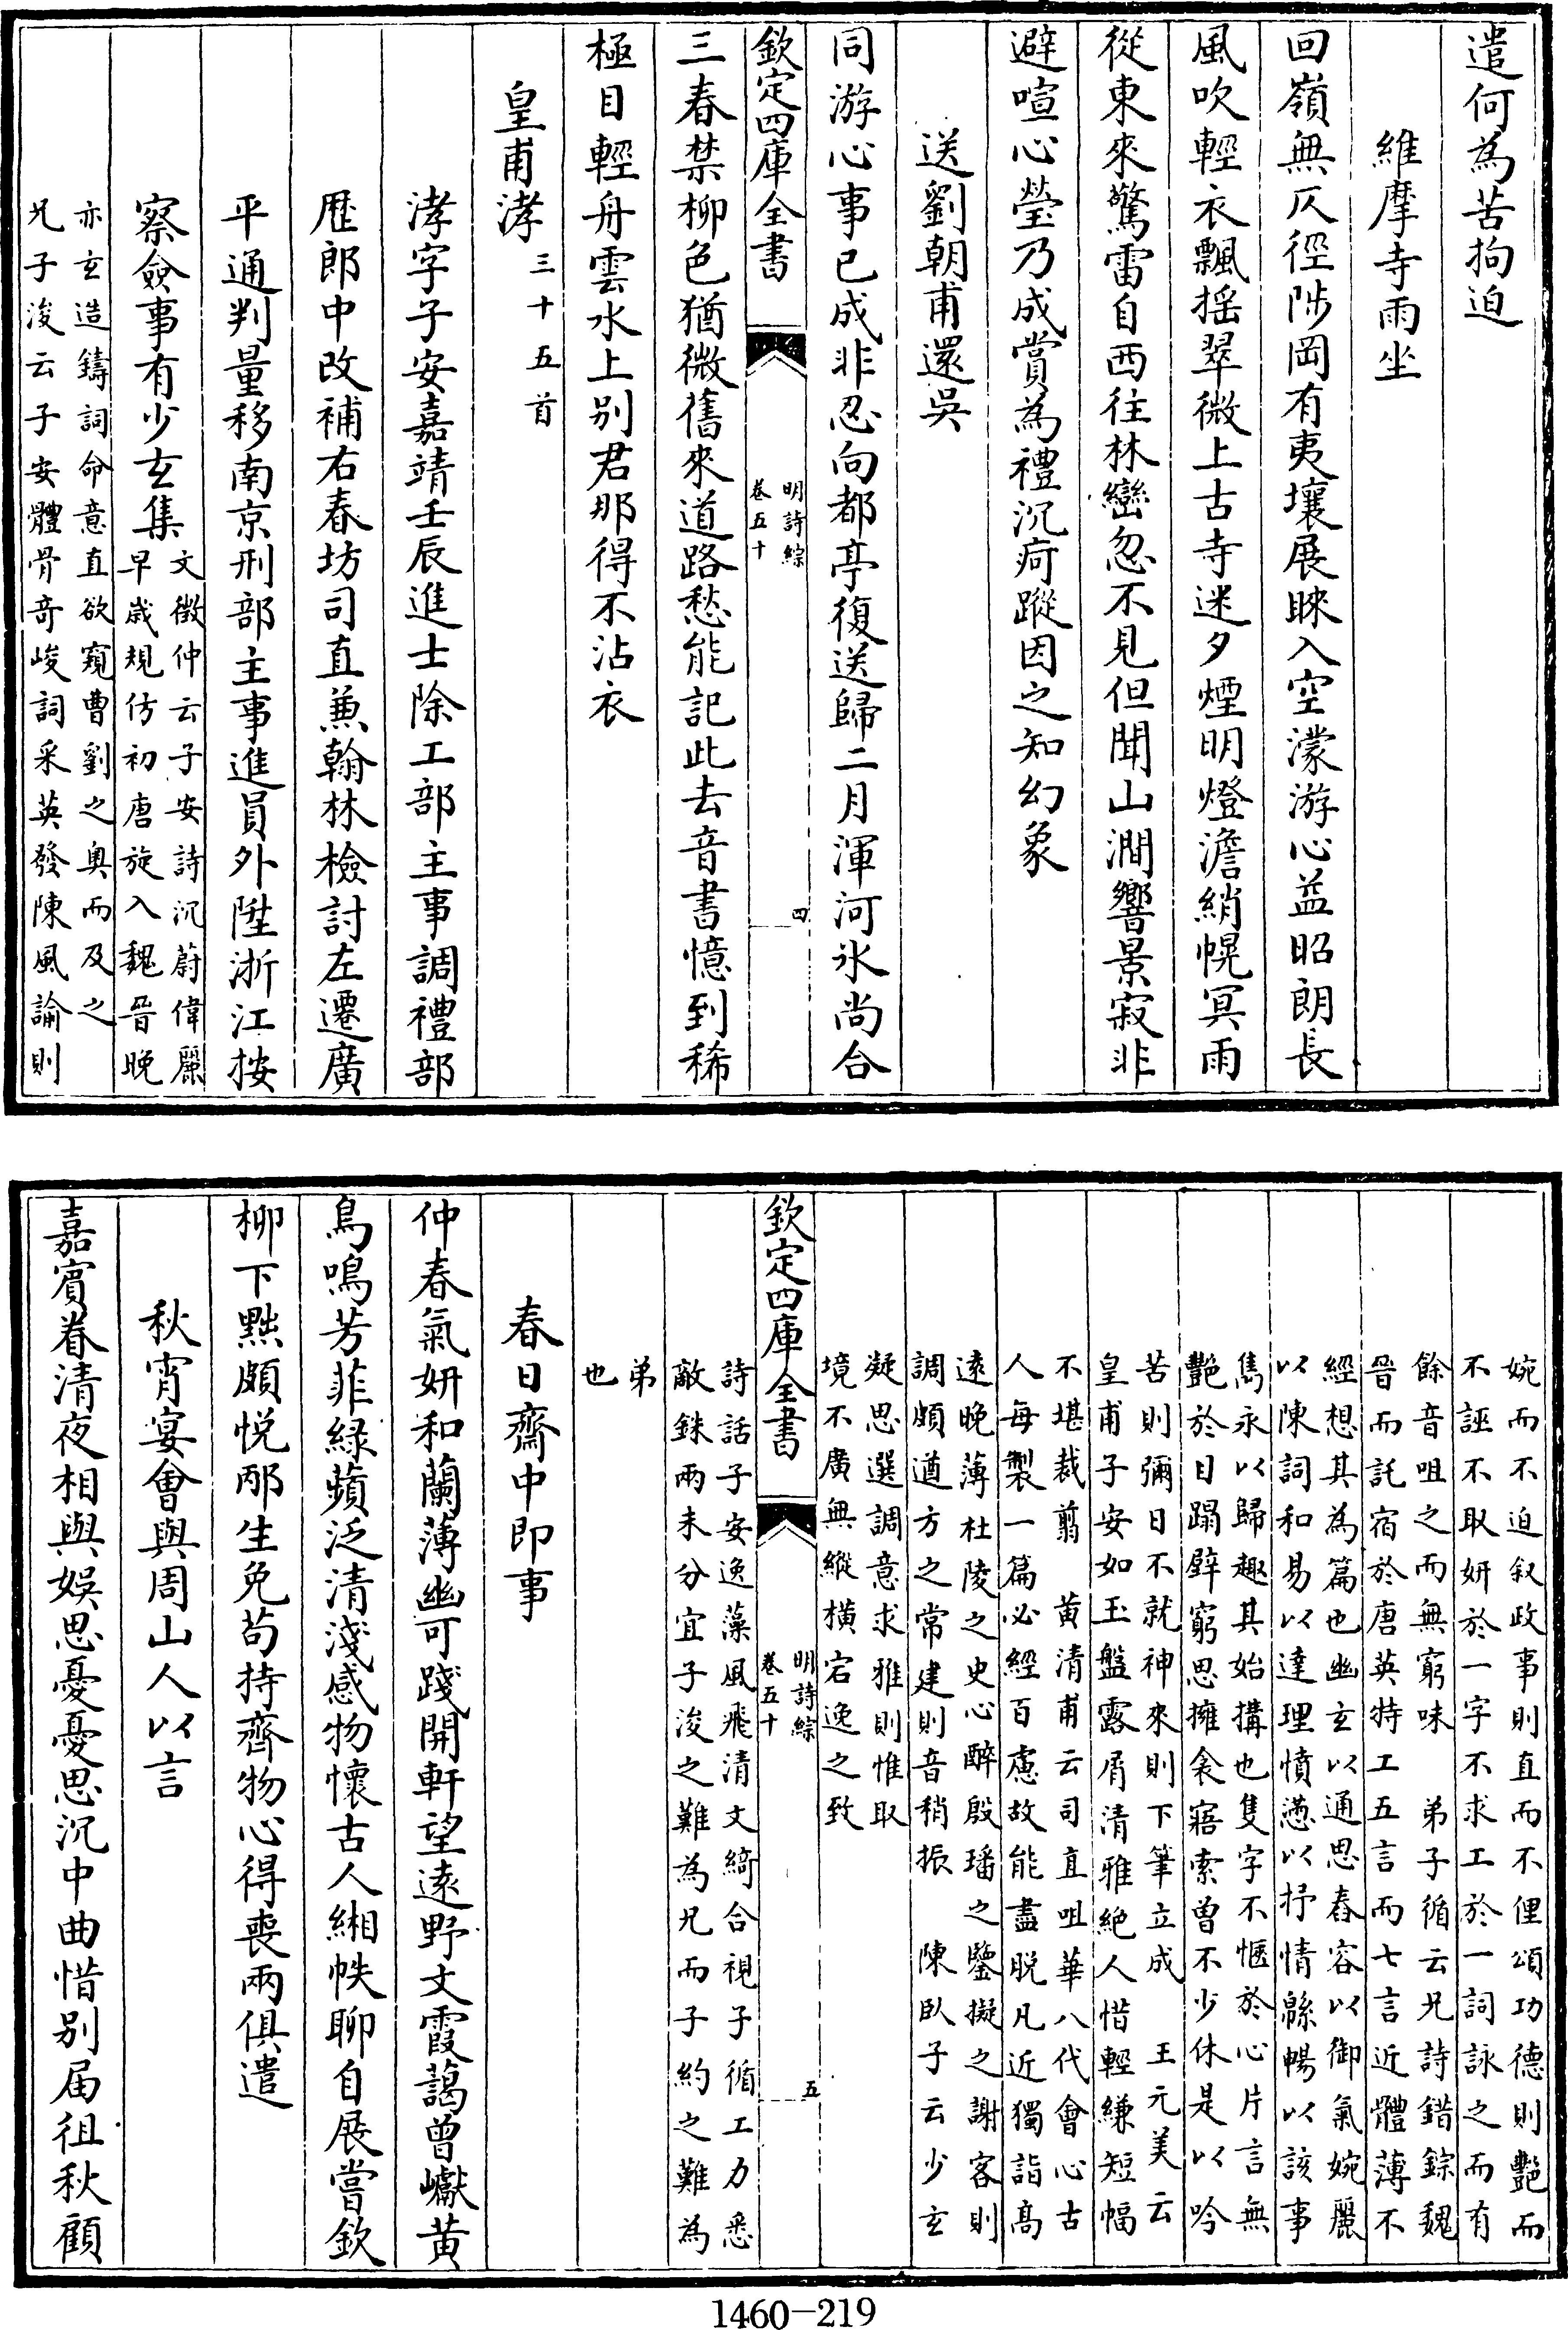 遣何為苦拘迫
維摩寺雨坐
回嶺無仄徑陟岡有夷壤展睐入空濛游心益昭朗長
風吹輕衣飄揺翠微上古寺迷夕煙明燈澹綃幌冥雨
從東來驚雷自西往林巒忽不見但聞山澗響景寂非
避喧心瑩乃成賞為禮沉疴蹤因之知幻象
送劉朝甫還吳
同游心事已成非忍向都亭復送歸二月渾河氷尚合
欽定四庫全書
明詩綜
卷五十
四
三春禁柳色猶微舊來道路愁能記此去音書憶到稀
極目輕舟雲水上别君那得不沾衣
皇甫涍三十五首
涍字子安嘉靖壬辰進士除工部主事調禮部
歴郎中改補右春坊司直兼翰林檢討左遷廣
平通判量移南京刑部主事進員外陞浙江按
察僉事有少玄集文徵仲云子安詩沉蔚偉麗
早歲規仿初唐旋入魏晉晚
亦玄造鑄詞命意直欲窺曹劉之奥而及之
兄子浚云子安體骨奇峻詞采英發陳風論則
婉而不迫叙政事則直而不俚頌功德則艷而
不誣不取妍於一字不求工於一詞詠之而有
餘音咀之而無窮味　弟子循云兄詩錯綜魏
晉而託宿於唐英特工五言而七言近體薄不
經想其為篇也幽玄以通思舂容以御氣婉麗
以陳詞和易以達理憤懣以抒情緜暢以該事
雋永以歸趣其始搆也隻字不愜於心片言無
艷於目蹋壁窮思擁衾寤索曽不少休是以吟
苦則彌日不就神來則下筆立成　王元美云
皇甫子安如玉盤露屑清雅絶人惜輕縑短幅
不堪裁翦　黄清甫云司直咀華八代會心古
人每製一篇必經百慮故能盡脱凡近獨詣髙
逺晚薄杜陵之史心醉殷璠之鑒擬之謝客則
調頗遒方之常建則音稍振　陳臥子云少玄
凝思選調意求雅則惟取
境不廣無縱横宕逸之致
欽定四庫全書
明詩綜
卷五十
五
詩話子安逸藻風飛清文綺合視子循工力悉
敵銖兩未分宜子浚之難為兄而子約之難為
弟
也
春日齋中即事
仲春氣妍和蘭薄幽可踐開軒望逺野文霞藹曽巘黄
鳥鳴芳菲緑蘋泛清淺感物懷古人緗帙聊自展嘗欽
柳下黜頗悦邴生免苟持齊物心得喪兩俱遣
秋宵宴會與周山人以言
嘉賓眷清夜相與娱思憂憂思沉中曲惜别届徂秋顧
1460-219